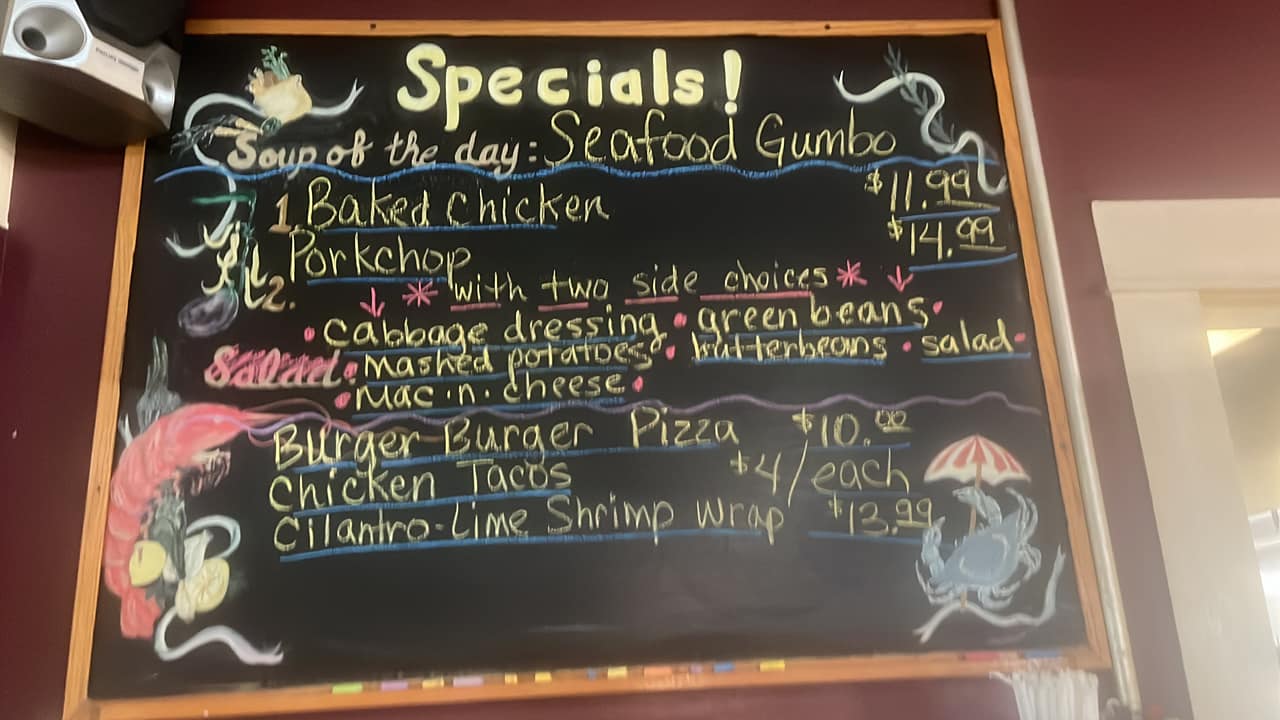 Specials!
Soup of the day: Seafood Gumbo
1. Baked Chicken $11.99
2. Porkchop $14.99
* with two side choices *
• cabbage dressing • green beans •
• Mashed potatoes • butterbeans • salad •
• Mac .n. cheese •
Burger Burger Pizza $10.00
Chicken Tacos $4/each
Cilantro-Lime Shrimp Wrap $13.99